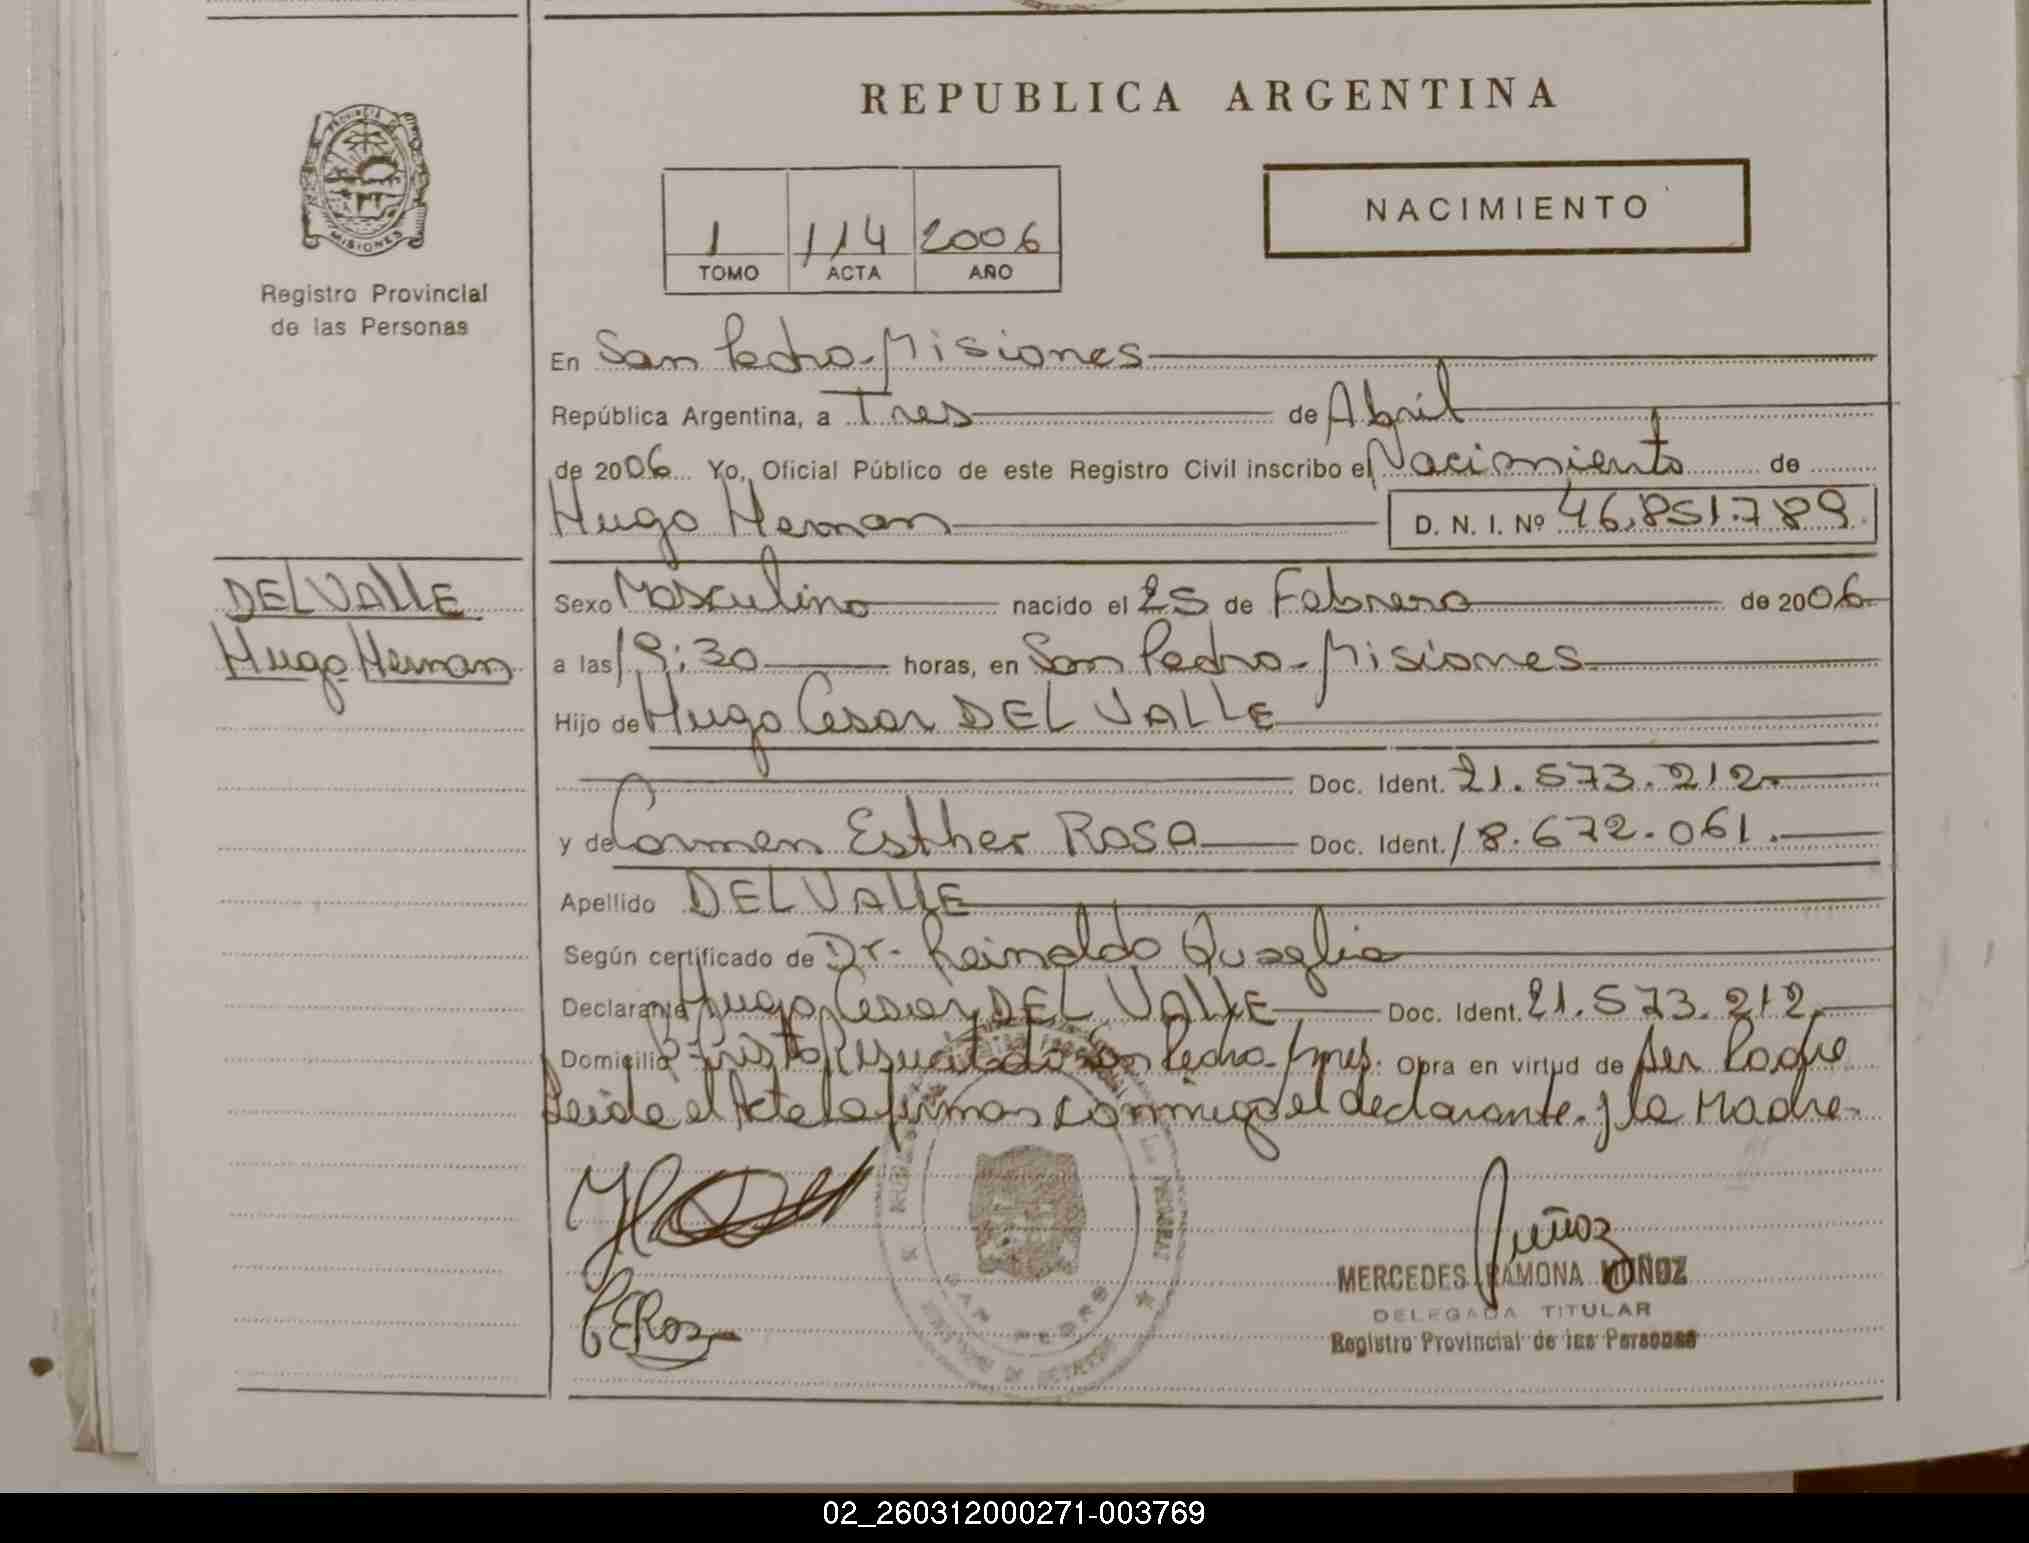 REPUBLICA ARGENTINA
PROVINCIA DE
MISIONES
Registro Provincial
de las Personas
1 114 2006
TOMO ACTA AÑO
NACIMIENTO
En San Pedro-Misiones
República Argentina, a Tres de Abril
de 2006 Yo, Oficial Público de este Registro Civil inscribo el Nacimiento de
Hugo Hernan D. N. I. Nº 46.851.789
DEL VALLE
Hugo Hernan
Sexo Masculino nacido el 25 de Febrero de 2006
a las 19:30 horas, en San Pedro-Misiones
Hijo de Hugo Cesar DEL VALLE
Doc. Ident. 21.573.212.
y de Carmen Esther Rosa Doc. Ident. 18.672.061.
Apellido DEL VALLE
Según certificado de Dr. Reinaldo
Declarante Hugo Cesar DEL VALLE Doc. Ident. 21.573.212
Domicilio Bº Cristo Resucitado San Pedro-Mnes. Obra en virtud de ser Padre
Leida el Acta la firman conmigo el declarante y la Madre-
Muñoz
MERCEDES RAMONA MUÑOZ
DELEGADA TITULAR
Registro Provincial de las Personas
SAN PEDRO
02_260312000271-003769